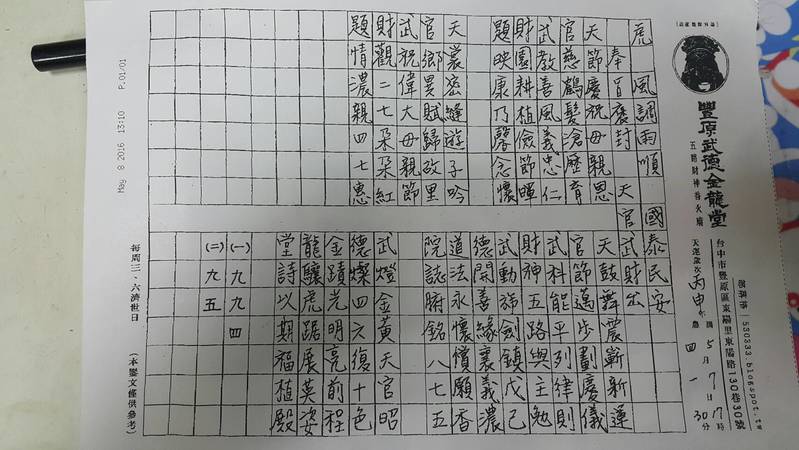 豐原武德金龍堂
五路財神香火廟
台中市豐原區東陽里東陽路130巷30號
530333.blogspot.tw
天運歲次丙申年
5月7日17時30分
四 一
虎 風調雨順 國泰民安
奉旨褒封 天官武財
天節慶祝母親思
官慈鶴髮滄歷育
武教善風義忠仁
財園耕植儉節暉
題映康乃馨念懷
密縫遊子吟
官鄉異賦歸故里
武祝偉大母親節
財觀二七朵朵紅
題情濃親四七惠
天鼓舞震嶄新蓮
官節邁步劃慶儀
武科能平列律則
財神五路與主勉
武動旆劍鎮戊己
德門善緣襄義濃
道法永懷償願香
院誌腑銘八七五
武燈金黃天官昭
德燦四六復十色
金蹟光明亮前程
龍驤虎踞展英姿
堂詩以期福植殿
(一)九九四
(二)九五
每周三、六濟世日
(本鑾文僅供參考)
May 8 2016 13:10 P.01/01